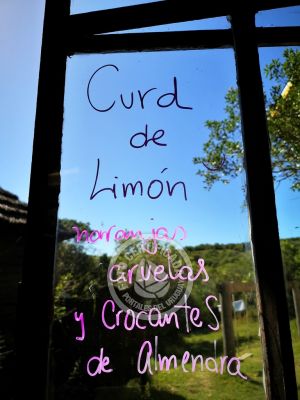 Curd
de
Limón
naranjas
ciruelas
y Crocantes
de Almendra
PORTALES DEL URUGUAY